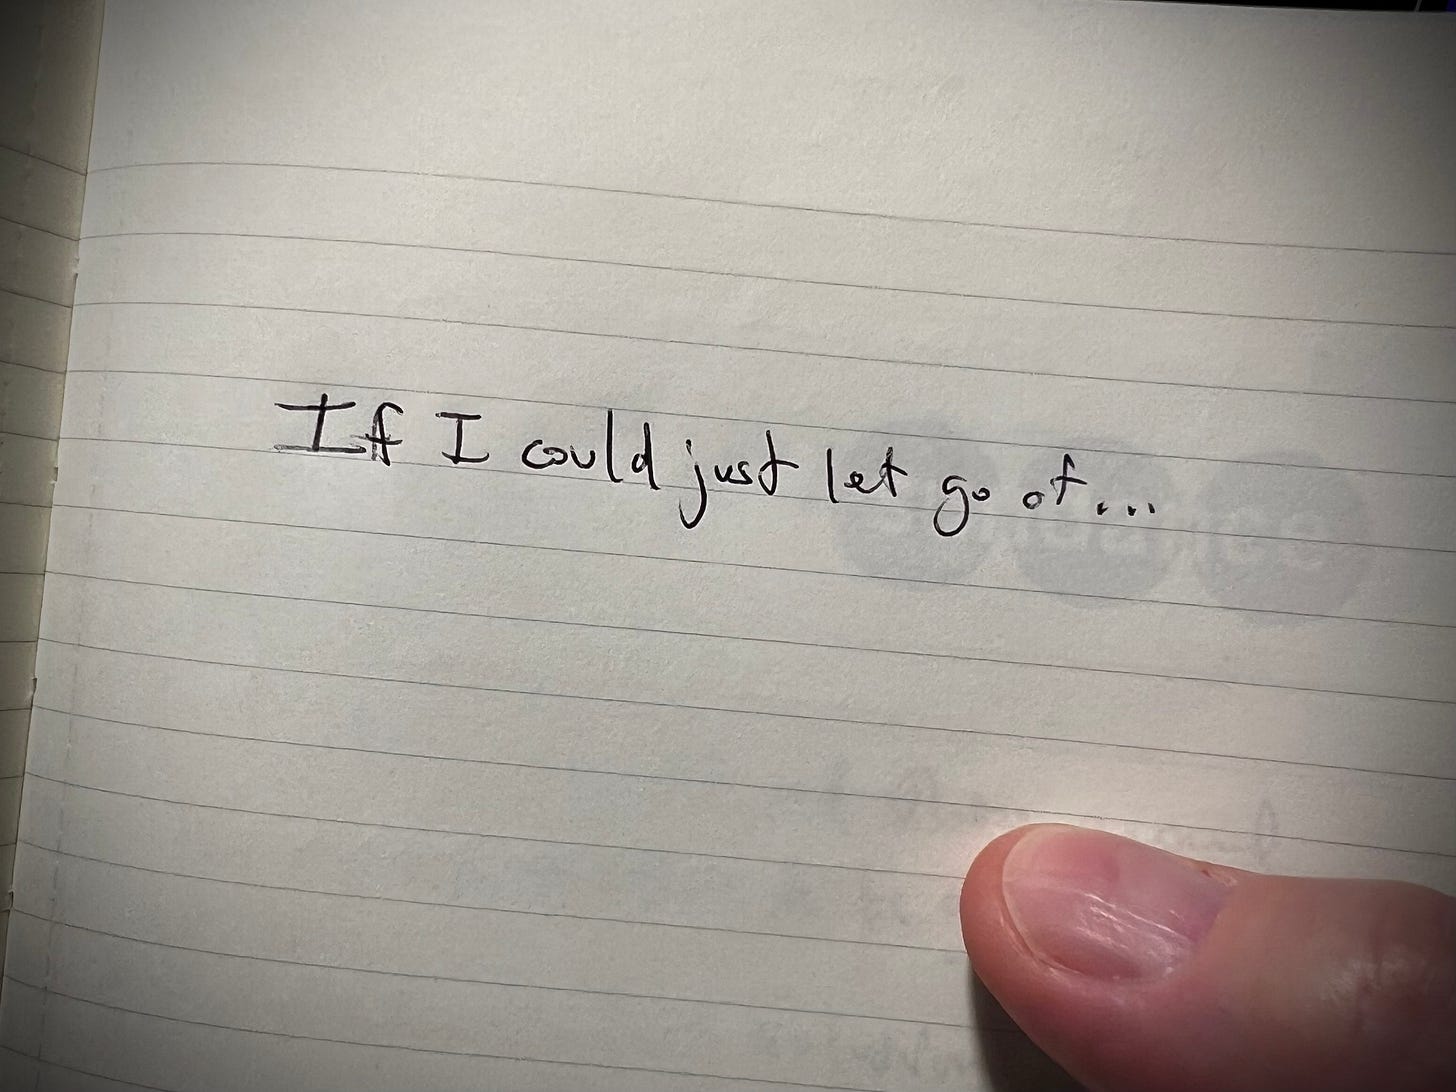 If I could just let go of...